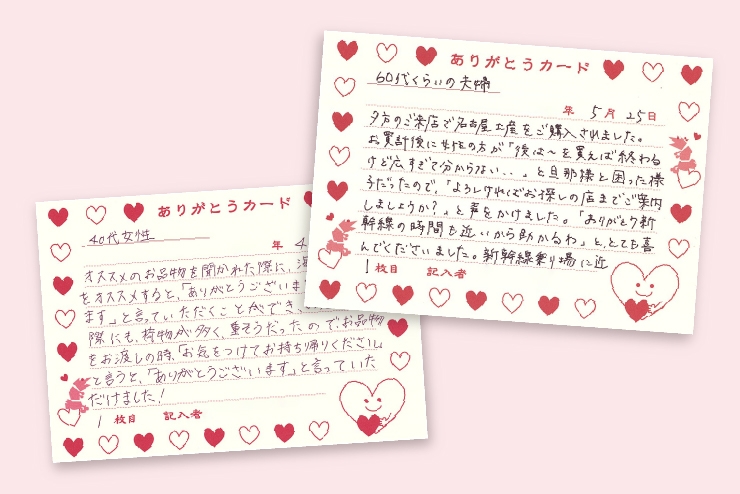 ありがとうカード
60代くらいの夫婦
年 5月 25日
夕方のご来店で名古屋土産をご購入されました。
お買計後に女性の方が「後は〜を買えば終わる
けど広すぎて分からない・・」と旦那様と困った様
子だったので、「よろしければお探しの店までご案内
しましょうか?」と声をかけました。「ありがとう新
幹線の時間も近いから助かるわ」と、とても喜
んでくださいました。新幹線乗り場に近
1枚目 記入者
ありがとうカード
40代女性
年 4
オススメのお品物を聞かれた際に、海
をオススメすると、「ありがとうございま
ます」と言っていただくことができ、
際にも、荷物が多く、重そうだったのでお品物
をお渡しの時、「お気をつけてお持ち帰りください」
と言うと、「ありがとうございます」と言っていた
だけました!
1枚目 記入者